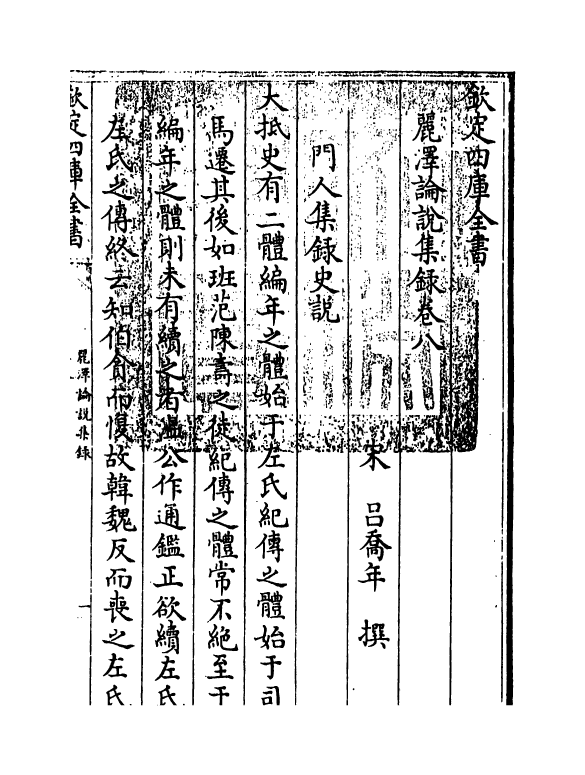 欽定四庫全書
麗澤論說集録卷八
宋 呂喬年 撰
門人集録史說
大抵史有二體編年之體始于左氏紀傳之體始于司
馬遷其後如班范陳壽之徒紀傳之體常不絶至于
編年之體則未有續之者溫公作通鑑正欲續左氏
左氏之傳終云知伯貪而愎故韓魏反而喪之左氏
欽定四庫全書
麗澤論說集録
一